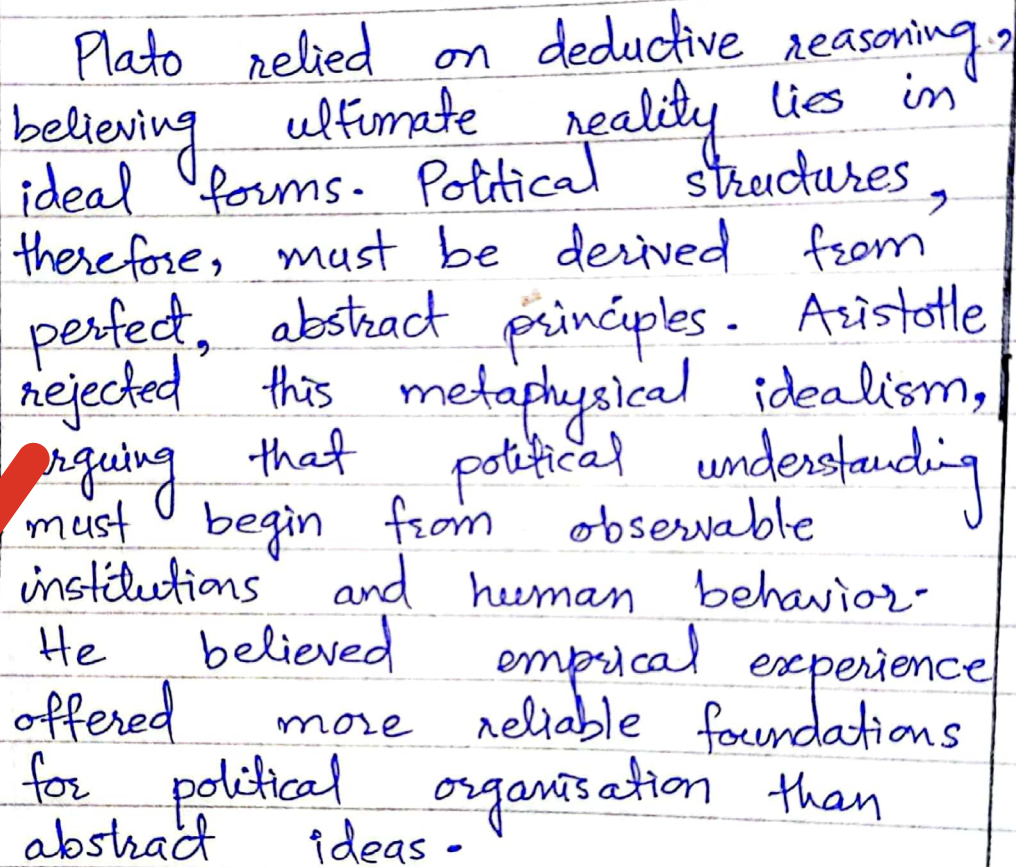 Plato relied on deductive reasoning,
believing ultimate reality lies in
ideal forms. Political structures,
therefore, must be derived from
perfect, abstract principles. Aristotle
rejected this metaphysical idealism,
arguing that political understanding
must begin from observable
institutions and human behavior.
He believed emprical experience
offered more reliable foundations
for political organisation than
abstract ideas.